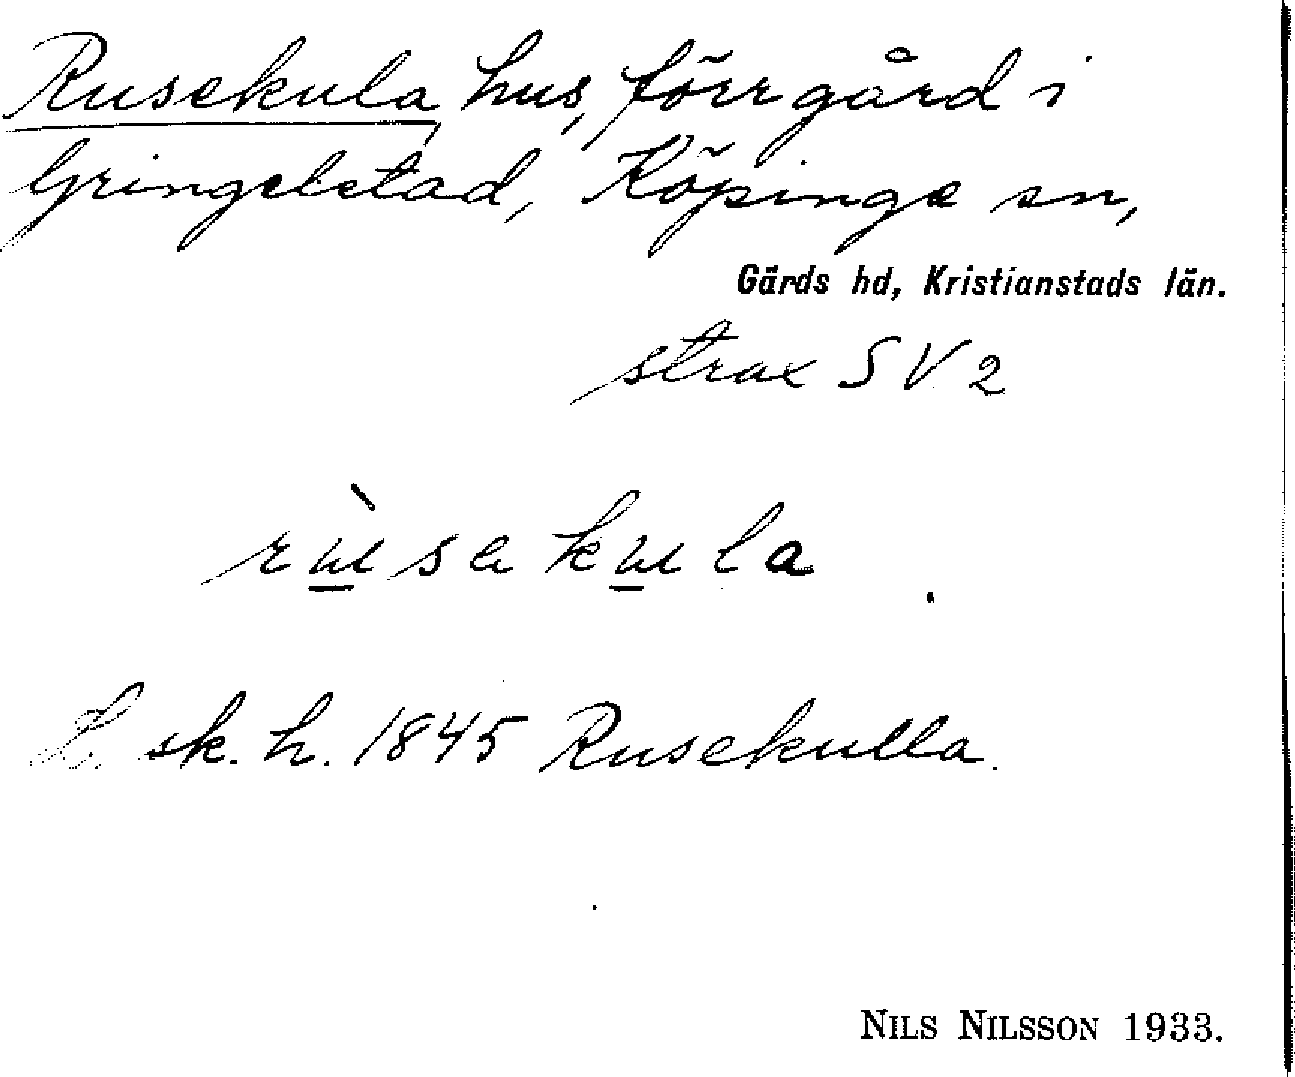 Rusekula, hus, förr gård i
Gringelstad, Köpinge sn,
Gärds hd, Kristianstads län.
strax SV 2
rùsakula
L. sk. h. 1845 Rusekulla.
NILS NILSSON 1933.